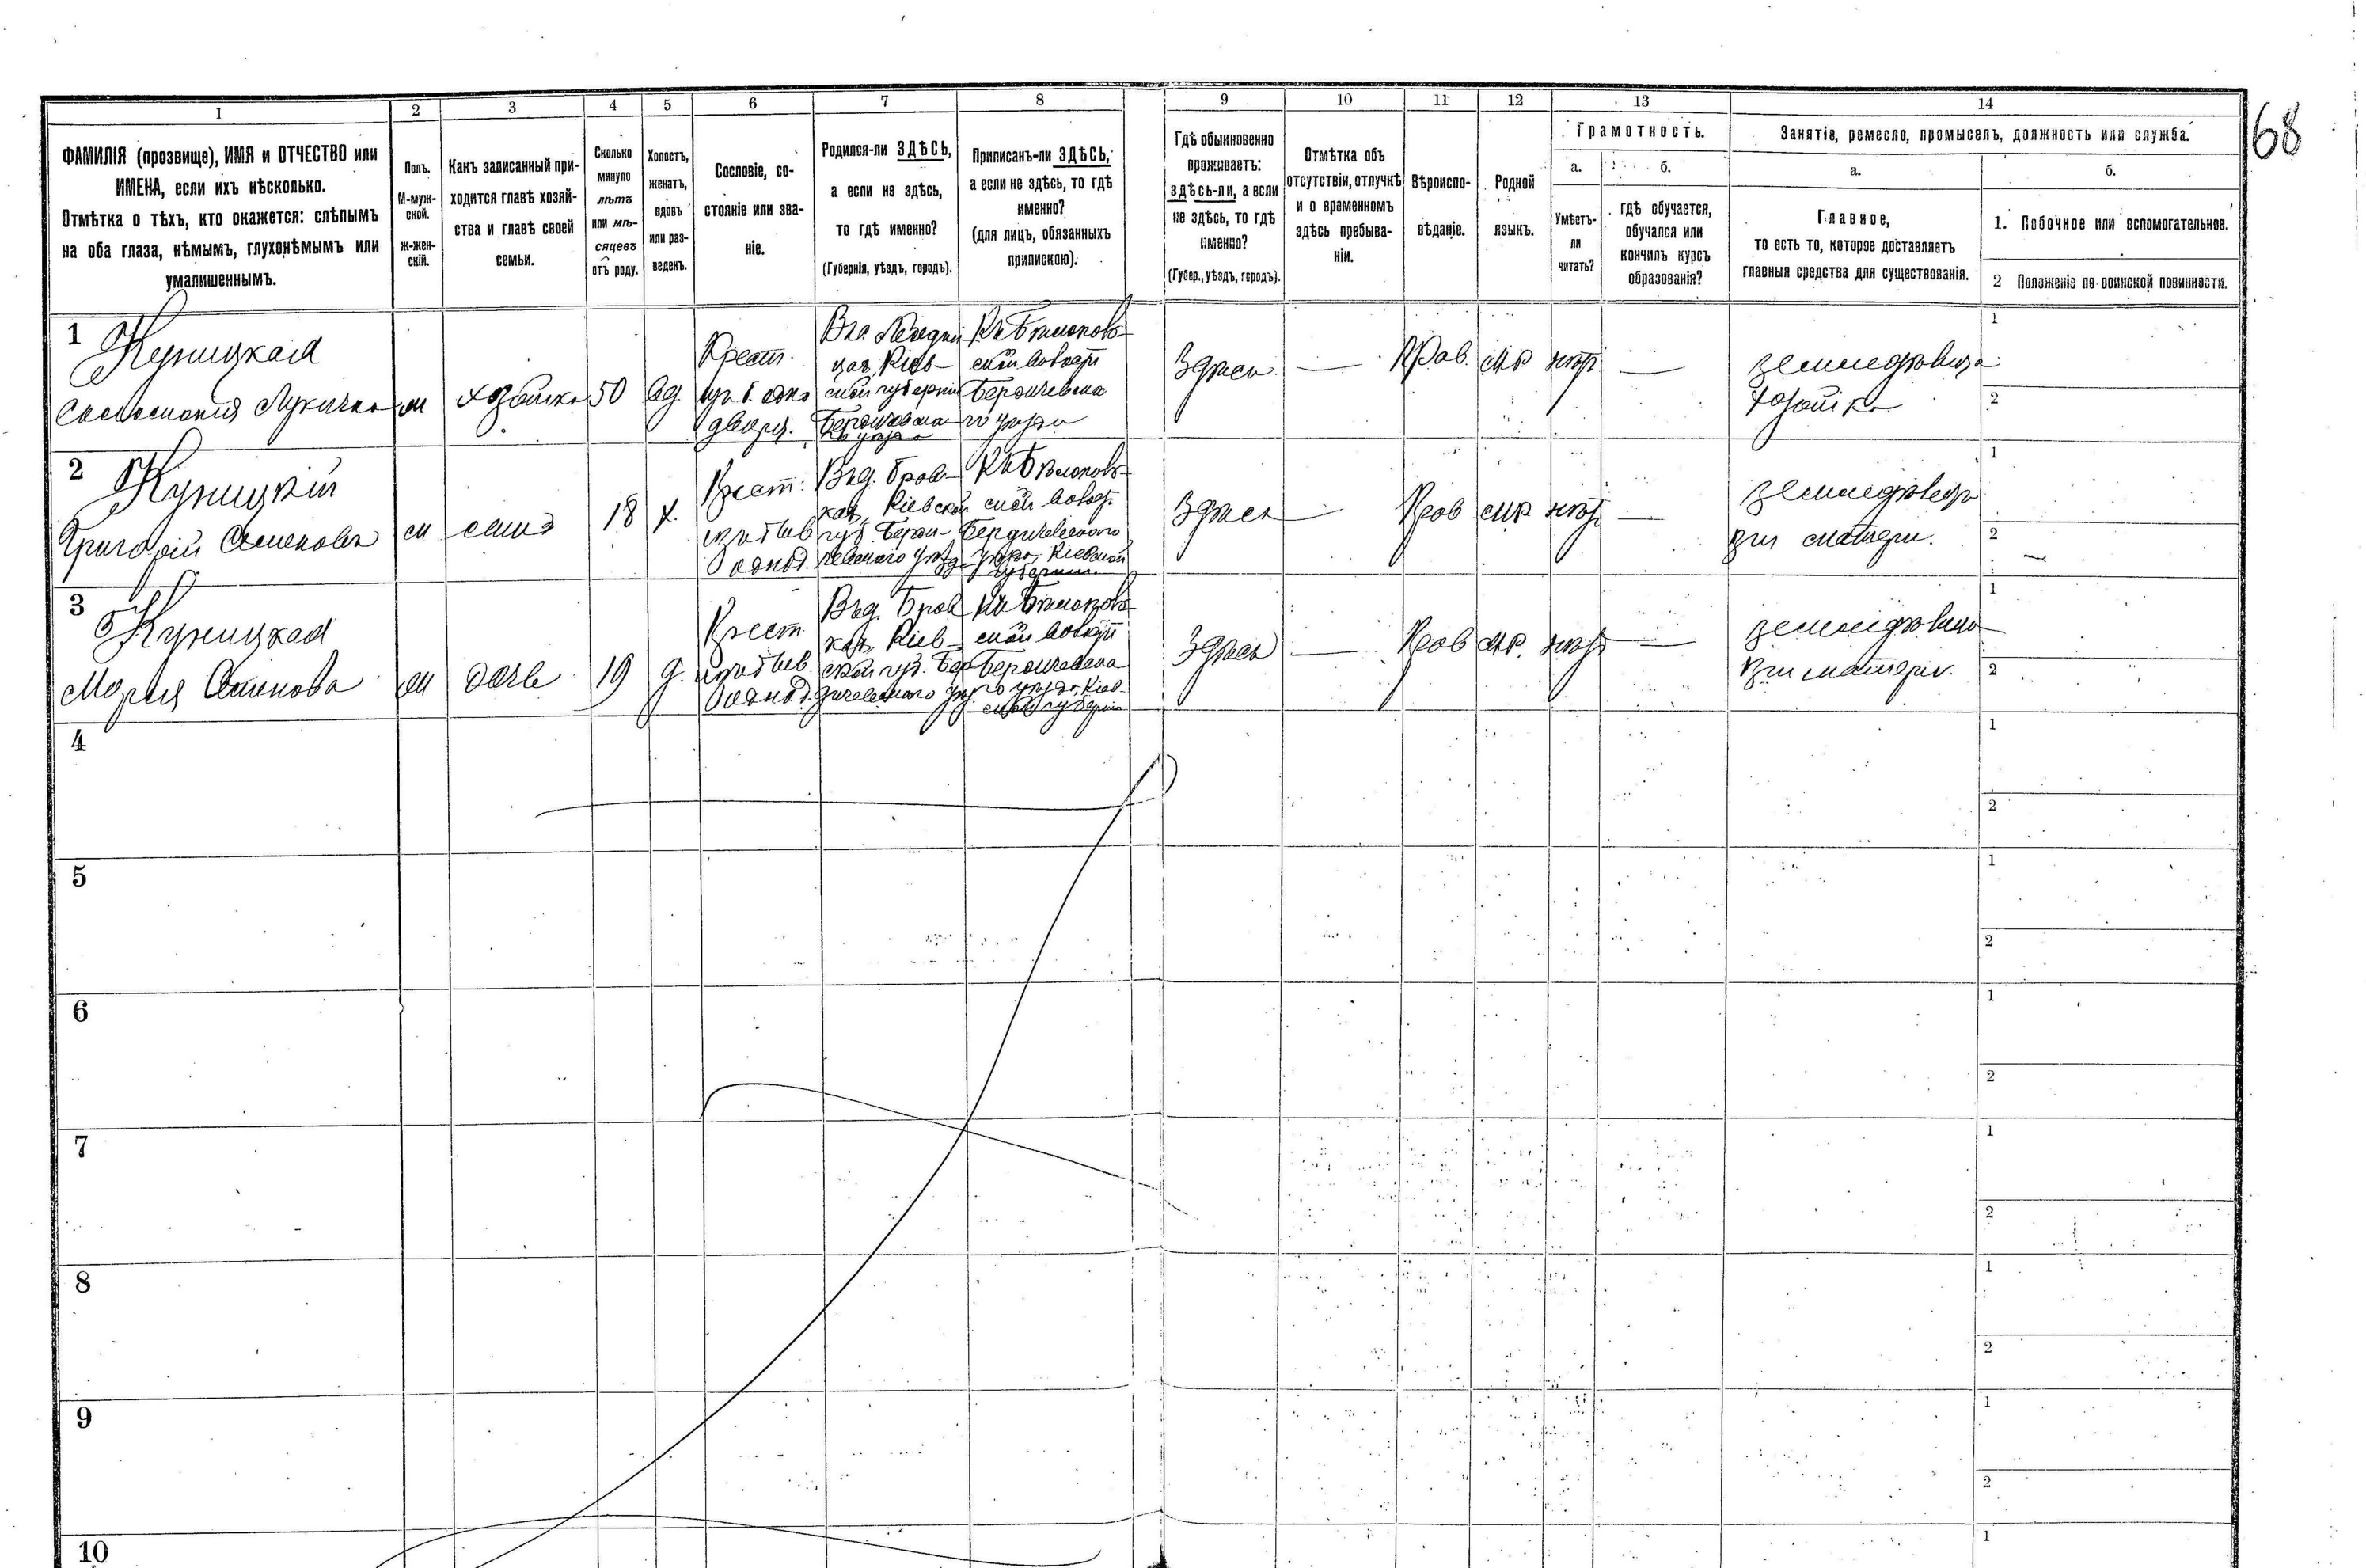 68
1 2 3 4 5 6 7 8 9 10 11 12 13 14
ФАМИЛІЯ (прозвище), ИМЯ и ОТЧЕСТВО или
ИМЕНА, если ихъ нѣсколько.
Отмѣтка о тѣхъ, кто окажется: слѣпымъ
на оба глаза, нѣмымъ, глухонѣмымъ или
умалишеннымъ.
Полъ.
М-муж-
ской.
ж-жен-
скій.
Какъ записанный при-
ходится главѣ хозяй-
ства и главѣ своей
семьи.
Сколько
минуло
лѣтъ
или мѣ-
сяцевъ
отъ роду.
Холостъ,
женатъ,
вдовъ
или раз-
веденъ.
Сословіе, со-
стояніе или зва-
ніе.
Родился-ли ЗДѢСЬ,
а если не здѣсь,
то гдѣ именно?
(Губернія, уѣздъ, городъ).
Приписанъ-ли ЗДѢСЬ,
а если не здѣсь, то гдѣ
именно?
(для лицъ, обязанныхъ
припискою).
Гдѣ обыкновенно
проживаетъ:
здѣсь-ли, а если
не здѣсь, то гдѣ
именно?
(Губер., уѣздъ, городъ).
Отмѣтка объ
отсутствіи, отлучкѣ
и о временномъ
здѣсь пребыва-
ніи.
Вѣроиспо-
вѣданіе.
Родной
языкъ.
Грамотность.
а.
Умѣетъ-
ли
читать?
б.
гдѣ обучается,
обучался или
кончилъ курсъ
образованія?
Занятіе, ремесло, промыселъ, должность или служба.
а.
Главное,
то есть то, которое доставляетъ
главныя средства для существованія.
б.
1. Побочное или вспомогательное.
2 Положеніе по воинской повинности.
1
Куницкая
Лукична
хозяйка
50
вд
Крест.
двори.
Кіев-
ской губерніи
ской волости
Бердичевска
го уѣзда
Здѣсь
—
Прав.
мр
нѣт
—
Хозяйка
1
2
2
Куницкій
Григорій Семеновъ
м
сынъ
18
х.
Крест.
однод.
Кіевской
губ. Берди-
чевского уѣзд
ской волост.
Бердичевского
уѣзд. Кіевской
губерніи
Здѣсь
—
Прав
мр
нѣт
—
при матери.
1
2
3
Куницкая
Марья Семенова
дочь
19
д.
Крест
однод.
Кіев-
ской губ. Бер
дичевского уѣз.
ской волости
Бердичевска
го уѣзда, Кіев-
ской губерніи
Здѣсь
—
Прав
мр.
нѣт
—
при матери.
1
2
4
1
2
5
1
2
6
1
2
7
1
2
8
1
2
9
1
2
10
1